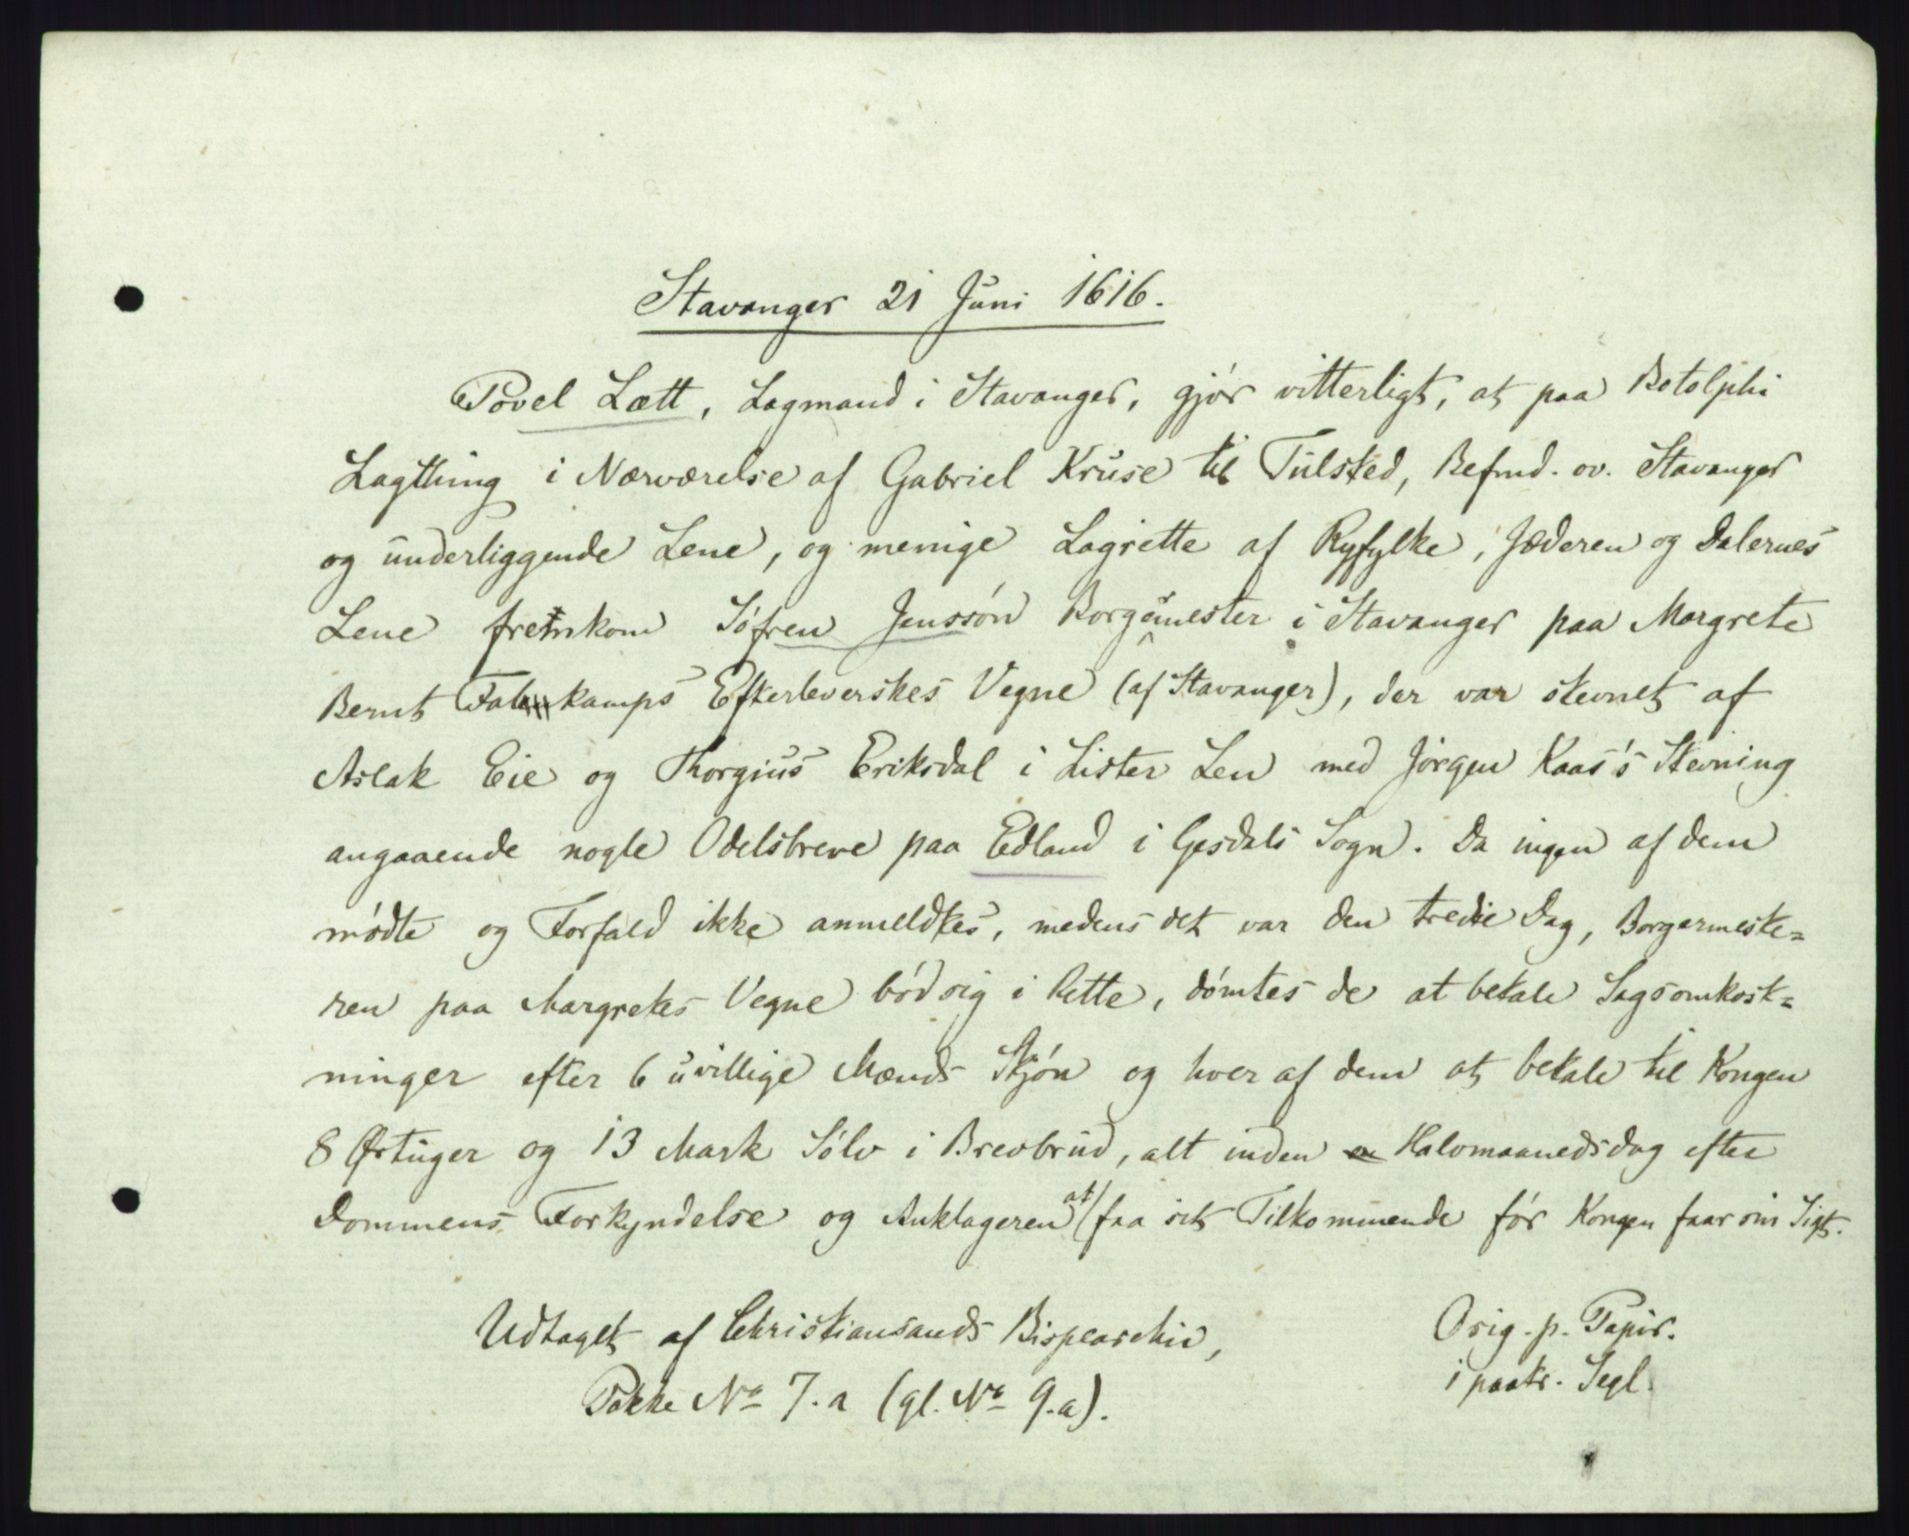 Stavanger 21 Juni 1616.
Povel Lætt, Lagmand i Stavanger, gjór vitterligt, at paa Botolphi
Lagthing i Nærværelse af Gabriel Kruse til Tulsted, Befmd. ov. Stavanger
og underliggende Lene, og menige Lagrette af Ryfylke, Jæderen og Dalernes
Lene fremkom Sófren Jenssón Borgemester i Stavanger paa Margrete
Bernt Falkamps Efterleverskes Vegne (af Stavanger), der var stevnet af
Aslak Eie og Thorgius Eriksdal i Lister Len med Jórgen Kaas's Stevning
angaaende nogle Odelsbreve paa Edland i Gesdals Sogn. Da ingen af dem
módte og Forfald ikke anmeldtes, medens det var den tredie Dag, Borgermeste=
ren paa Margretes Vegne bód sig i Rette, dómtes de at betale Sagsomkost=
ninger efter 6 uvillige Mænds Skjón og hver af dem at betale til Kongen
8 Ørtuger og 13 Mark Sólv i Brevbrud, alt inden Halvmaanedsdag efter
Dommens Forkyndelse og Anklageren at faa sit Tilkommende fór Kongen faar sin Sigt.
Udtaget af Christiansands Bispearchiv,
Pakke No 7.a (gl. No 9.a).
Orig. p. Papir.
1 paatr. Segl.